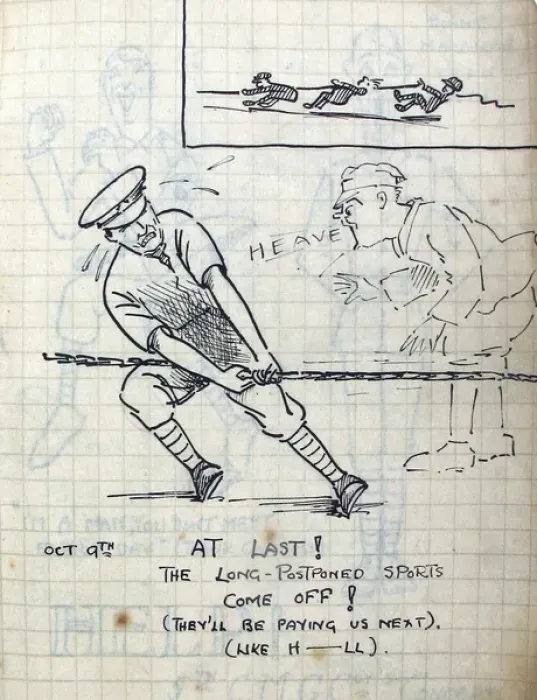 HEAVE
OCT 9TH
AT LAST!
THE LONG-POSTPONED SPORTS
COME OFF!
(THEY'LL BE PAYING US NEXT).
(LIKE H——LL).